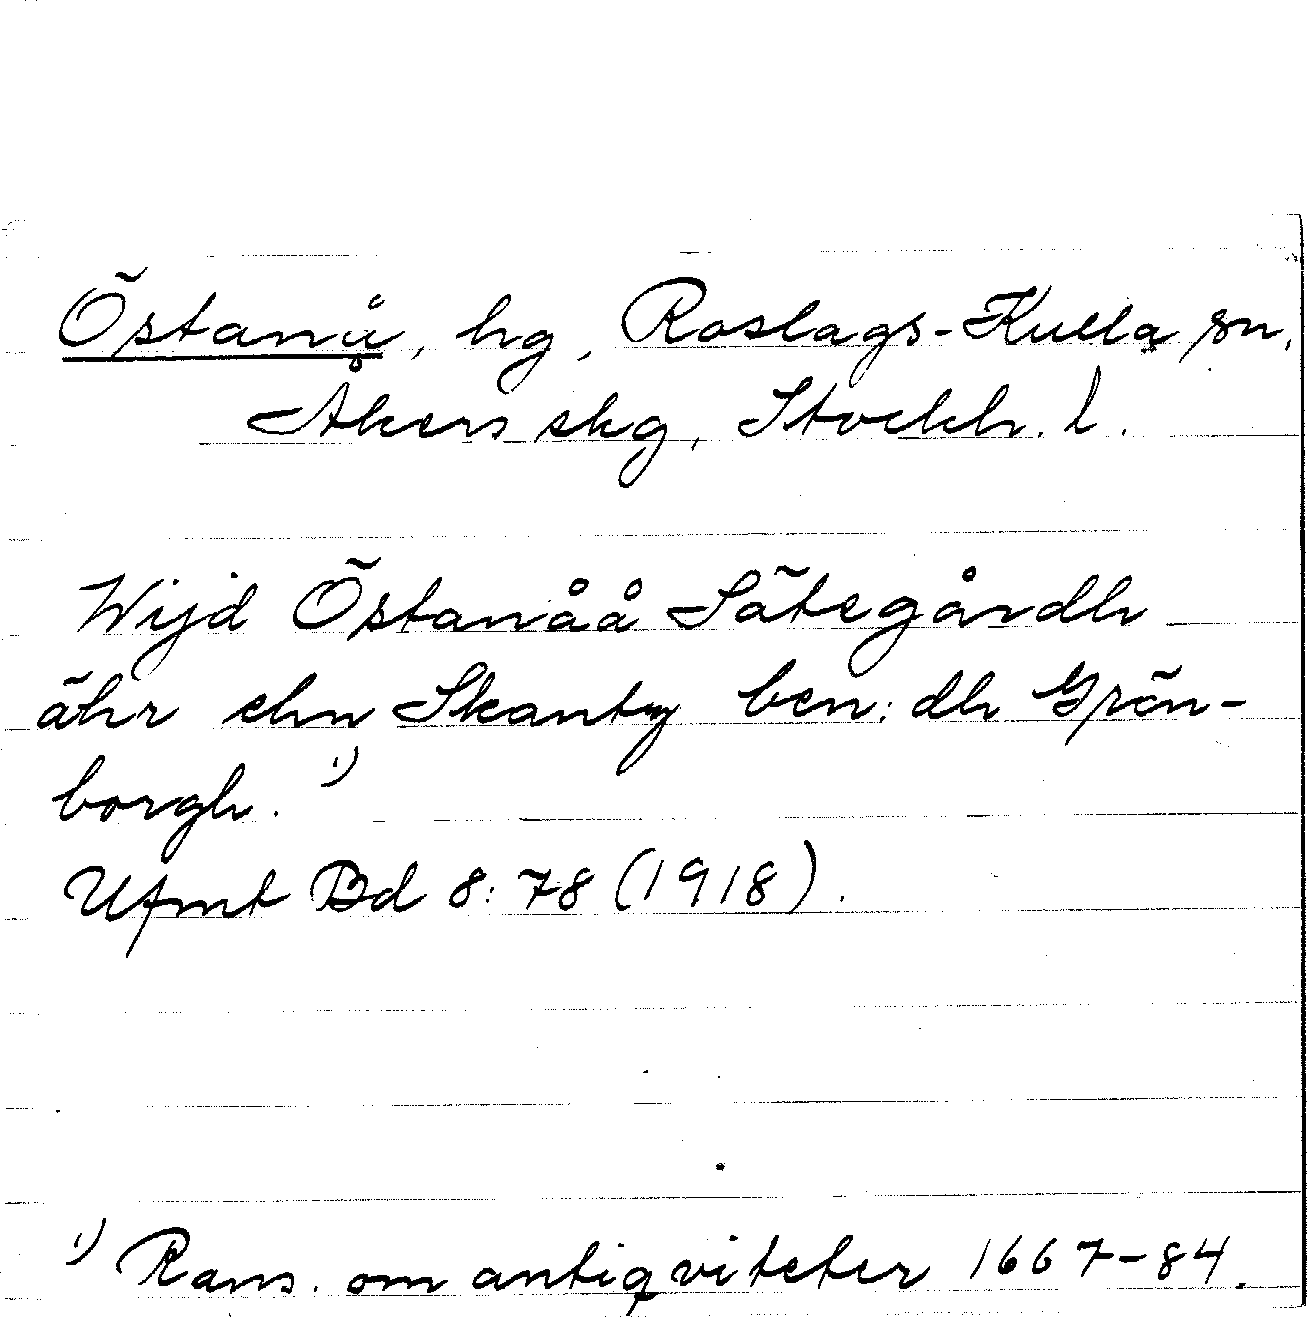 Östanå, hg, Roslags-Kulla sn,
Åkers skg, Stockh. l.
Wijd Östanåå Sätegårdh
ähr ehn Skantz ben: dh Grön-
borgh. 1)
Ufmt Bd 8: 78 (1918).
1) Rans. om antiqviteter 1667-84.